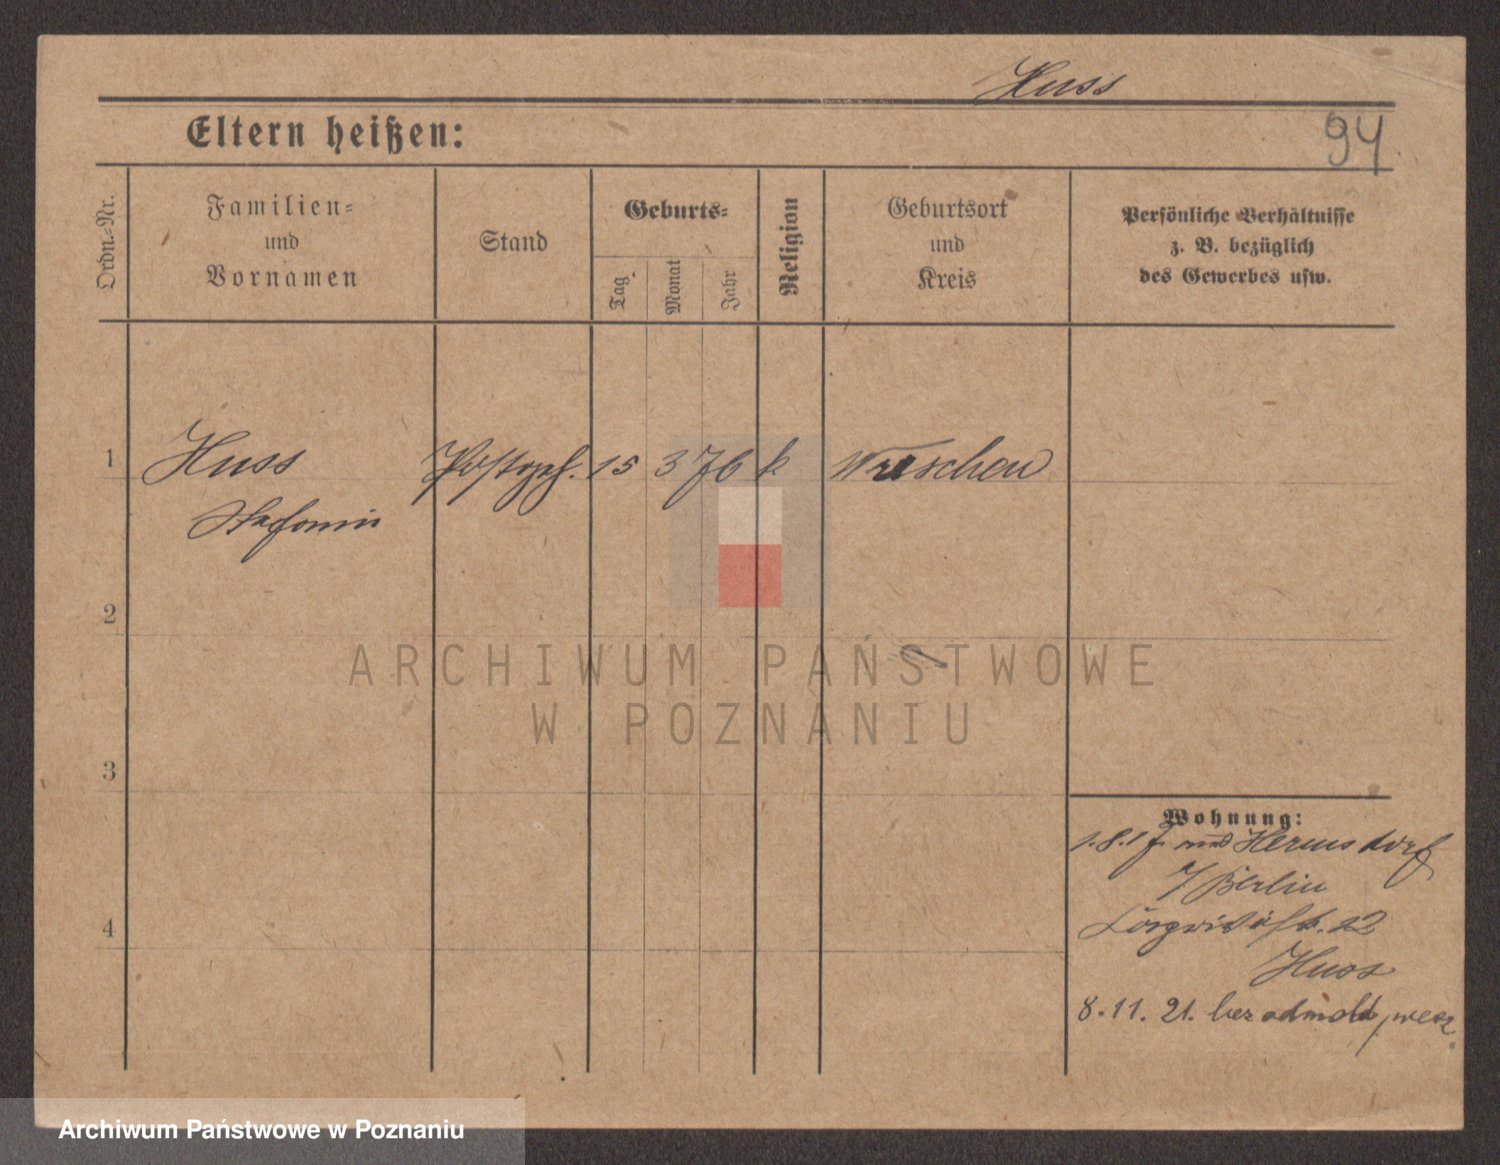 Huss
Eltern heißen:
94
Ordn.-Nr.
Familien-
und
Vornamen
Stand
Geburts-
Tag
Monat
Jahr
Religion
Geburtsort
und
Kreis
Persönliche Verhältnisse
z. B. bezüglich
des Gewerbes usw.
1 Huss 15 3 76 k. Wreschen
2
3
4
ARCHIWUM PAŃSTWOWE
W POZNANIU
Wohnung:
Hermsdorf
Berlin
22
Huss
8.11.21. bez odmold,
Archiwum Państwowe w Poznaniu